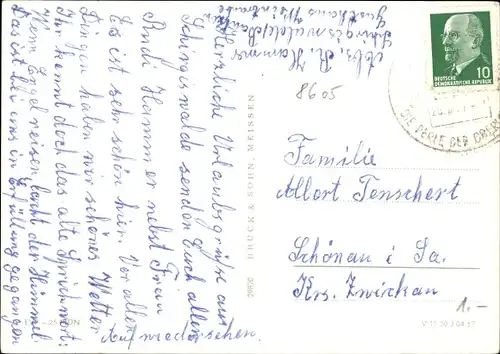 Abs. R. Hammer
Schirgiswalde / Bautzen
Gasthaus Weintraube
Herzliche Urlaubsgrüße aus
Schirgiswalde senden Euch allen
Rudi Hammer nebst Frau
Es ist sehr schön hier. Vor allen
Dingen haben wir schönes Wetter
Ihr kennt doch das alte Sprichwort:
Wenn Engel reisen lacht der Himmel
Das ist bei uns in Erfüllung gegangen
Auf wiedersehen.
29600 DRUCK & SOHN, MEISSEN
V 11 50
10
DEUTSCHE
DEMOKRATISCHE REPUBLIK
DIE PERLE DER
8605
Familie
Albort Tenschert
Schönau i. Sa.
Krs. Zwickau
1.-